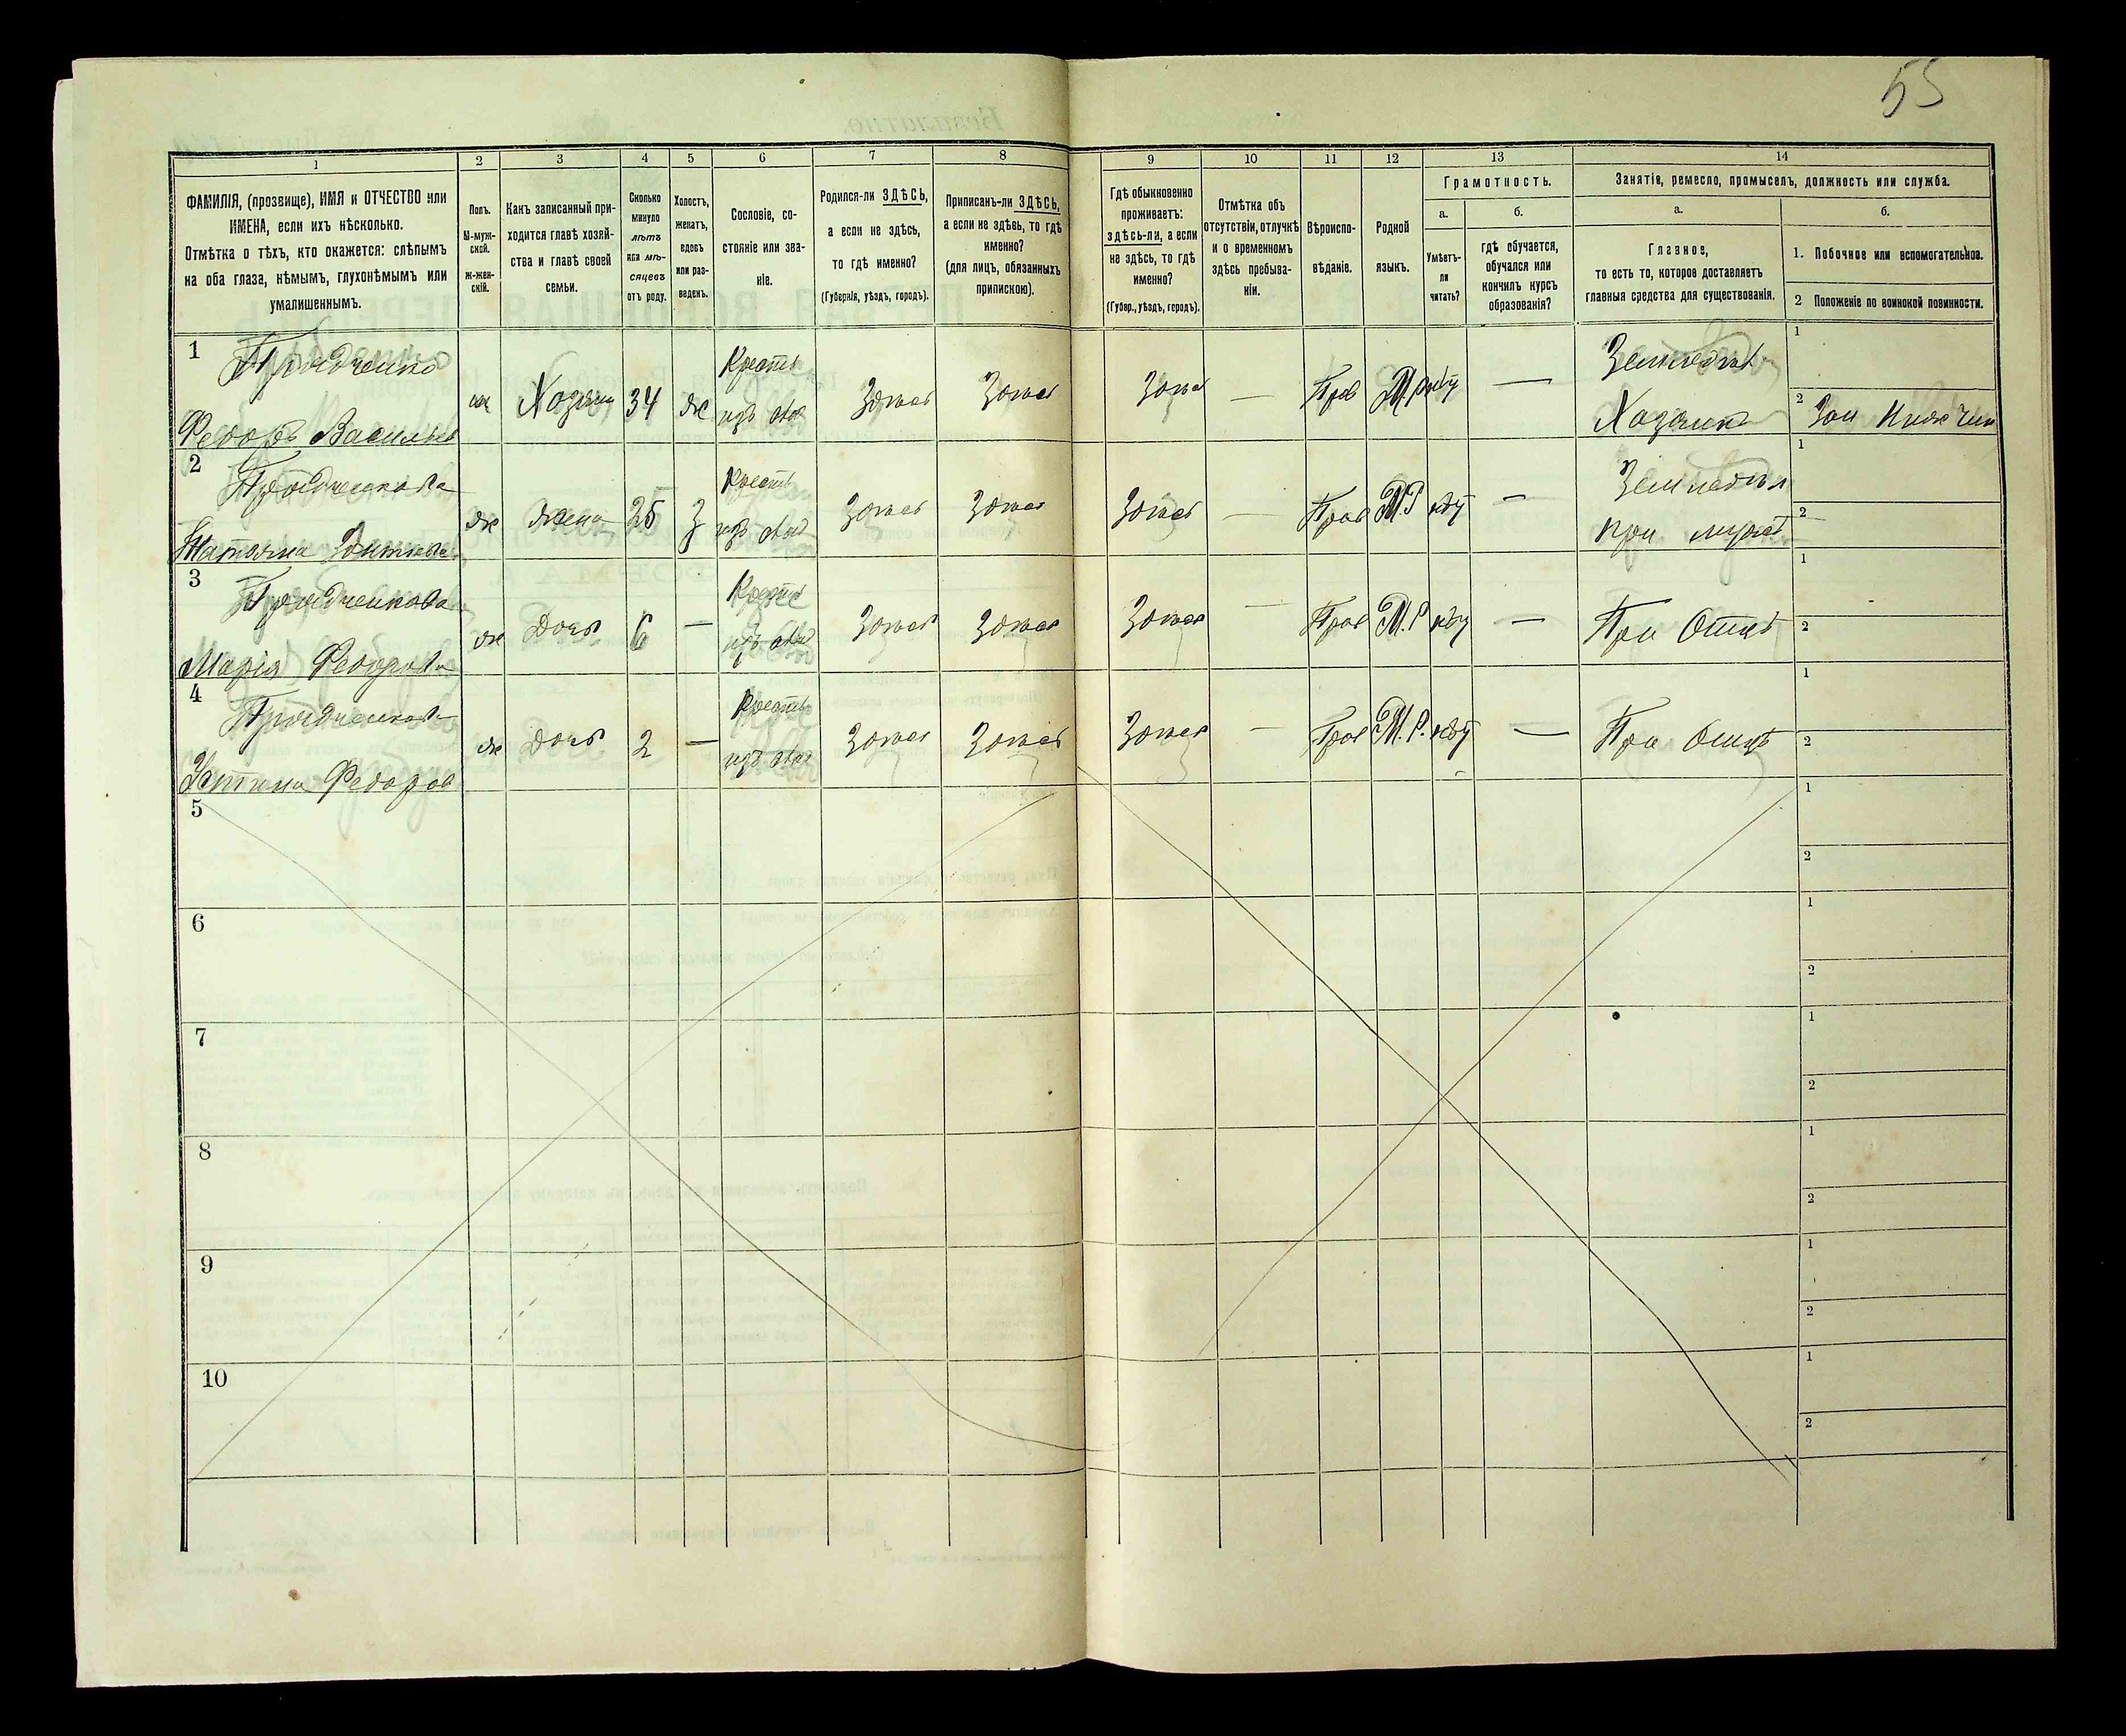 55
1 2 3 4 5 6 7 8 9 10 11 12 13 14
ФАМИЛІЯ, (прозвище), ИМЯ и ОТЧЕСТВО или
ИМЕНА, если ихъ нѣсколько.
Отмѣтка о тѣхъ, кто окажется: слѣпымъ
на оба глаза, нѣмымъ, глухонѣмымъ или
умалишеннымъ.
Полъ.
М-муж-
ской.
ж-жен-
скій.
Какъ записанный при-
ходится главѣ хозяй-
ства и главѣ своей
семьи.
Сколько
минуло
лѣтъ
или мѣ-
сяцевъ
отъ роду.
Холостъ,
женатъ,
вдовъ
или раз-
веденъ.
Сословіе, со-
стояніе или зва-
ніе.
Родился-ли ЗДѢСЬ,
а если не здѣсь,
то гдѣ именно?
(Губернія, уѣздъ, городъ).
Приписанъ-ли ЗДѢСЬ,
а если не здѣсь, то гдѣ
именно?
(для лицъ, обязанныхъ
припискою).
Гдѣ обыкновенно
проживаетъ:
здѣсь-ли, а если
не здѣсь, то гдѣ
именно?
(Губер., уѣздъ, городъ).
Отмѣтка объ
отсутствіи, отлучкѣ
и о временномъ
здѣсь пребыва-
ніи.
Вѣроиспо-
вѣданіе.
Родной
языкъ.
Грамотность.
а.
Умѣетъ-
ли
читать?
б.
гдѣ обучается,
обучался или
кончилъ курсъ
образованія?
Занятіе, ремесло, промыселъ, должность или служба.
а.
Главное,
то есть то, которое доставляетъ
главныя средства для существованія.
б.
1. Побочное или вспомогательное.
2 Положеніе по воинской повинности.
1
Федоръ Васильев
м Хозяин 34 ж Крестьян изъ Здѣсь Здѣсь Здѣсь — Прав М.Р нѣт —
Земледѣл
Хозяинъ
1
2
2
Татьяна
ж жена 25 З Крестьян изъ Здѣсь Здѣсь Здѣсь — Прав М.Р нѣт —
Земледѣл
при мужѣ
1
2
3
Марія Федорова
ж Дочь 6 — Крестьян изъ Здѣсь Здѣсь Здѣсь — Прав М.Р нѣт — При Отцѣ
1
2
4
Устина Федоров
ж Дочь 2 — Крестьян изъ Здѣсь Здѣсь Здѣсь — Прав М.Р. нѣт — При Отцѣ
1
2
5
1
2
6
1
2
7
1
2
8
1
2
9
1
2
10
1
2